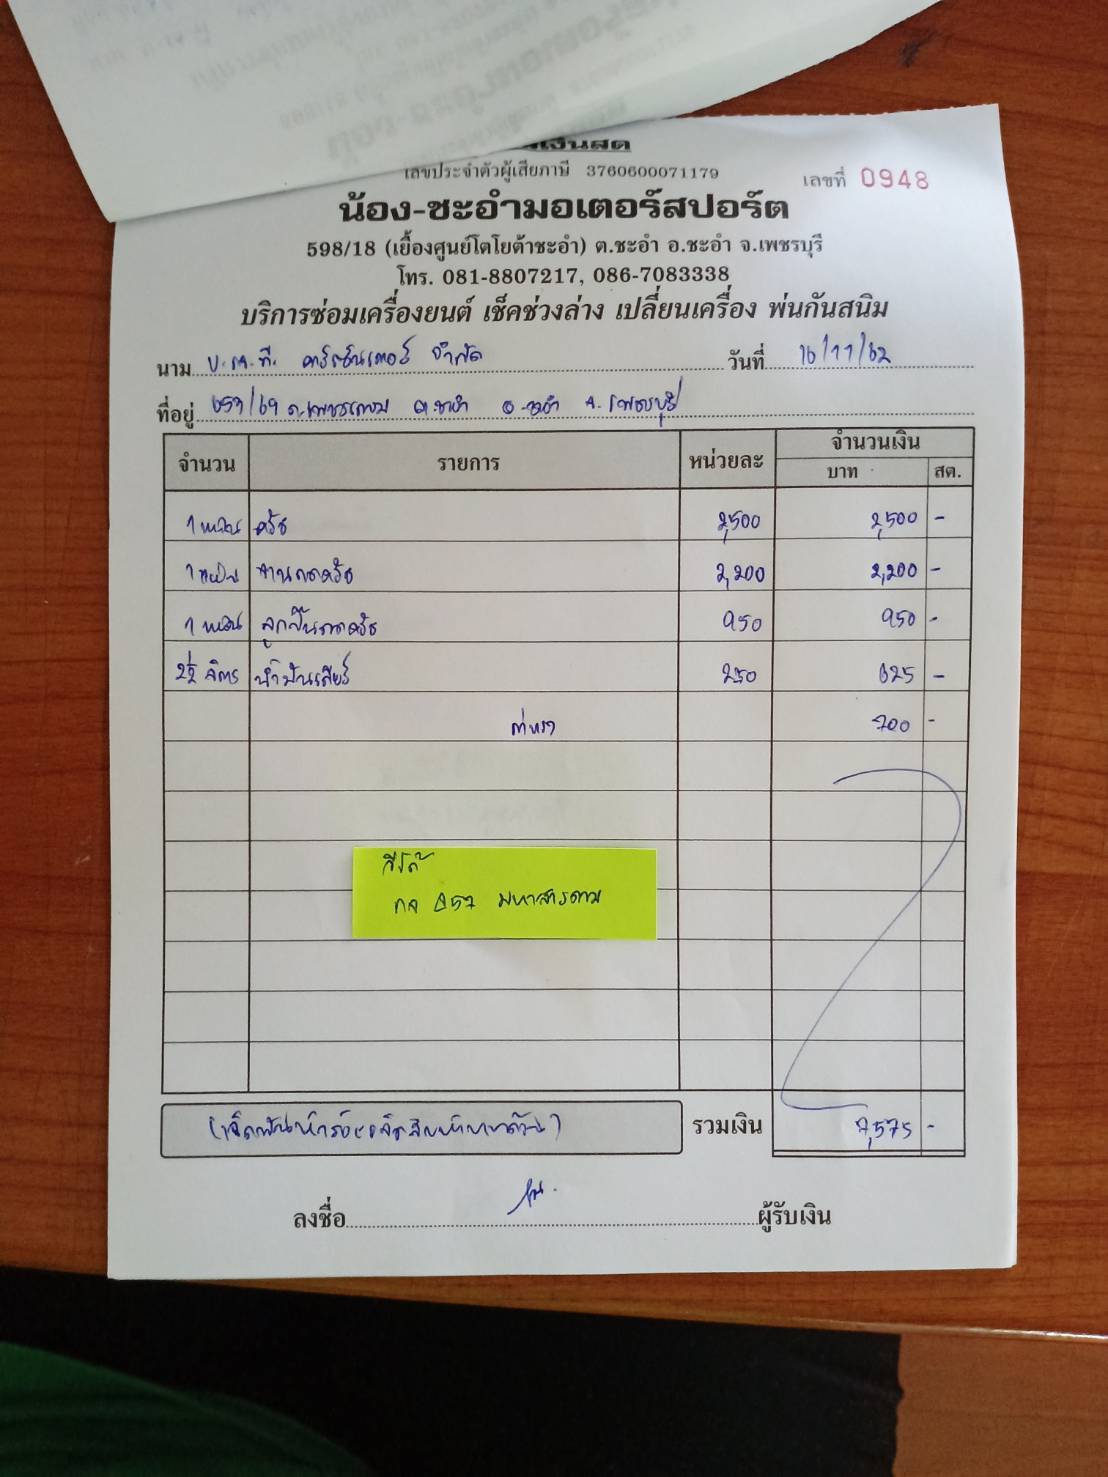 เงินสด
เลขประจำตัวผู้เสียภาษี 3760600071179
เลขที่ 0948
น้อง-ชะอำมอเตอร์สปอร์ต
598/18 (เยื้องศูนย์โตโยต้าชะอำ) ต.ชะอำ อ.ชะอำ จ.เพชรบุรี
โทร. 081-8807217, 086-7083338
บริการซ่อมเครื่องยนต์ เช็คช่วงล่าง เปลี่ยนเครื่อง พ่นกันสนิม
นาม จำกัด วันที่ 16/11/62
ที่อยู่ 659/69 ถ.เพชรเกษม ต.ชะอำ อ.ชะอำ จ.เพชรบุรี
จำนวน รายการ หน่วยละ จำนวนเงิน
บาท สต.
1 ครัช 2,500 2,500 -
1 จานกดครัช 2,200 2,200 -
1 ลูกปืนกดครัช 950 950 -
2½ ลิตร น้ำมันเกียร์ 250 625 -
ค่าแรง 700 -
กง 857 มหาสารคาม
(เจ็ดพันห้าร้อยเจ็ดสิบห้าบาทถ้วน) รวมเงิน 7,575 -
ลงชื่อ ผู้รับเงิน